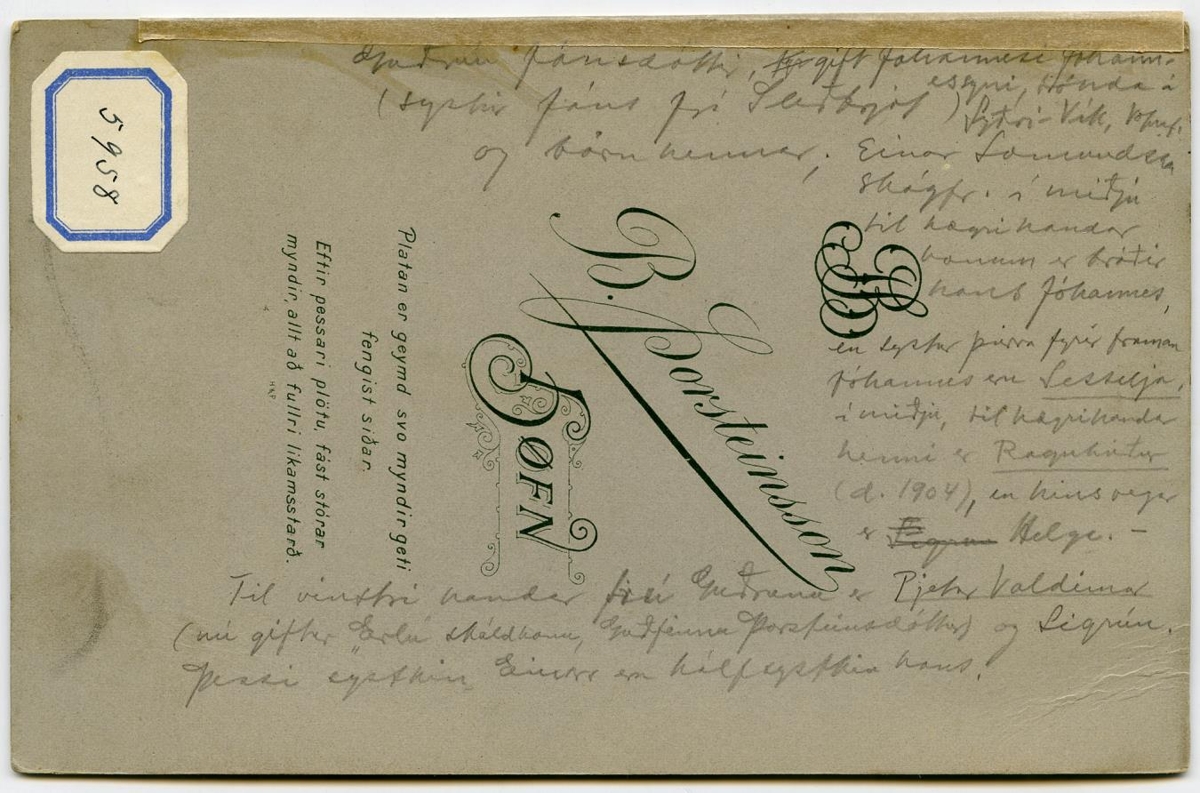 5958
Guðrún Jónsdóttir, gift Jóhannesi Jóhann-
essyni, bónda á
(systir Jóns frá Sleðbrjót) Syðri-Vík, Vpnf.
og börn hennar; Einar Sæmundsen
skógfr. í miðju
til hægri handar
honum er bróðir
hans Jóhannes,
en systur þeirra fyrir framan
Jóhannes eru Sesselja,
í miðju, til hægri handar
henni er Ragnheiður
(d. 1904), en hins vegar
er Helga. -
Til vinstri handar frú Guðrúnu er Pjetur Valdimar
(nú giftur "Erlu" skáldkonu, Guðfinnu Þorsteinsdóttur) og Sigrún.
Þessi systkin Einars eru hálfsystkin hans.
B. Þorsteinsson
HØFN
BÞ
Platan er geymd svo myndir geti
fengist siðar.
Eftir þessari plötu, fást stórar
myndir, allt að fullri likamsstarð.